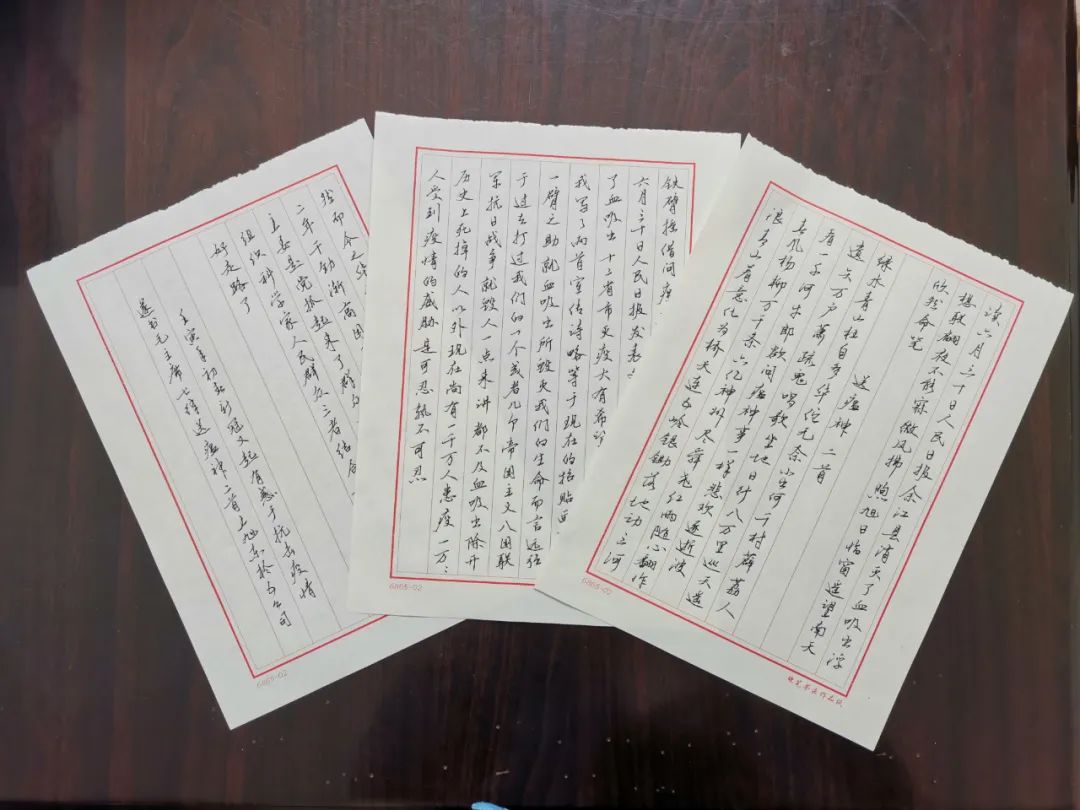 读六月三十日人民日报余江县消灭了血吸虫浮
想联翩夜不能寐微风拂煦旭日临窗遥望南天
欣然命笔
送瘟神二首
绿水青山枉自多华佗无奈小虫何千村薜荔人
遗矢万户萧疏鬼唱歌坐地日行八万里巡天遥
看一千河牛郎欲问瘟神事一样悲欢逐逝波
春风杨柳万千条六亿神州尽舜尧红雨随心翻作
浪青山着意化为桥天连五岭银锄落地动三河
铁臂摇借问瘟
六月三十日人民日报发表
了血吸虫十二省市灭疫大有希望
我写了两首宣传诗略等于现在的招贴画
一臂之助就血吸虫所毁灭我们的生命而言远强
于过去打过我们的一个或者几个帝国主义八国联
军抗日战争就毁人一点来讲都不及血吸虫除开
历史上死掉的人以外现在尚有一千万人患疫一万
人受到疫情的威胁是可忍孰不可忍
然而今之华
二年干劲渐高图
主要是党抓起来了群众
组织科学家人民群众三者结合
好走路了
壬寅年初新冠又起有感于抗击疫情
遂书毛主席七律送瘟神二首
6865-02
6865-02
6865-02